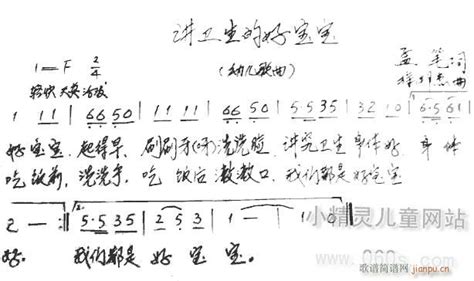 讲卫生的好宝宝
1=F 2/4
(幼儿歌曲)
孟笔词
曲
轻快 天真 活泼
1 11 | 66 50 | 11 11 | 66 50 | 5·5 35 | 32 10 | 6·5 61 |
好宝宝 起得早, 刷刷牙(呀)洗洗脸, 讲究卫生身体好, 身体
吃饭前, 洗洗手, 吃饭后漱漱口, 我们都是好宝宝
2 - :| 5·5 35 | 2 5 3 | 1 - | 1 0 ||
好. 我们都是好宝宝。
小精灵儿童网站
060s.com
歌谱简谱网
jianpu.cn